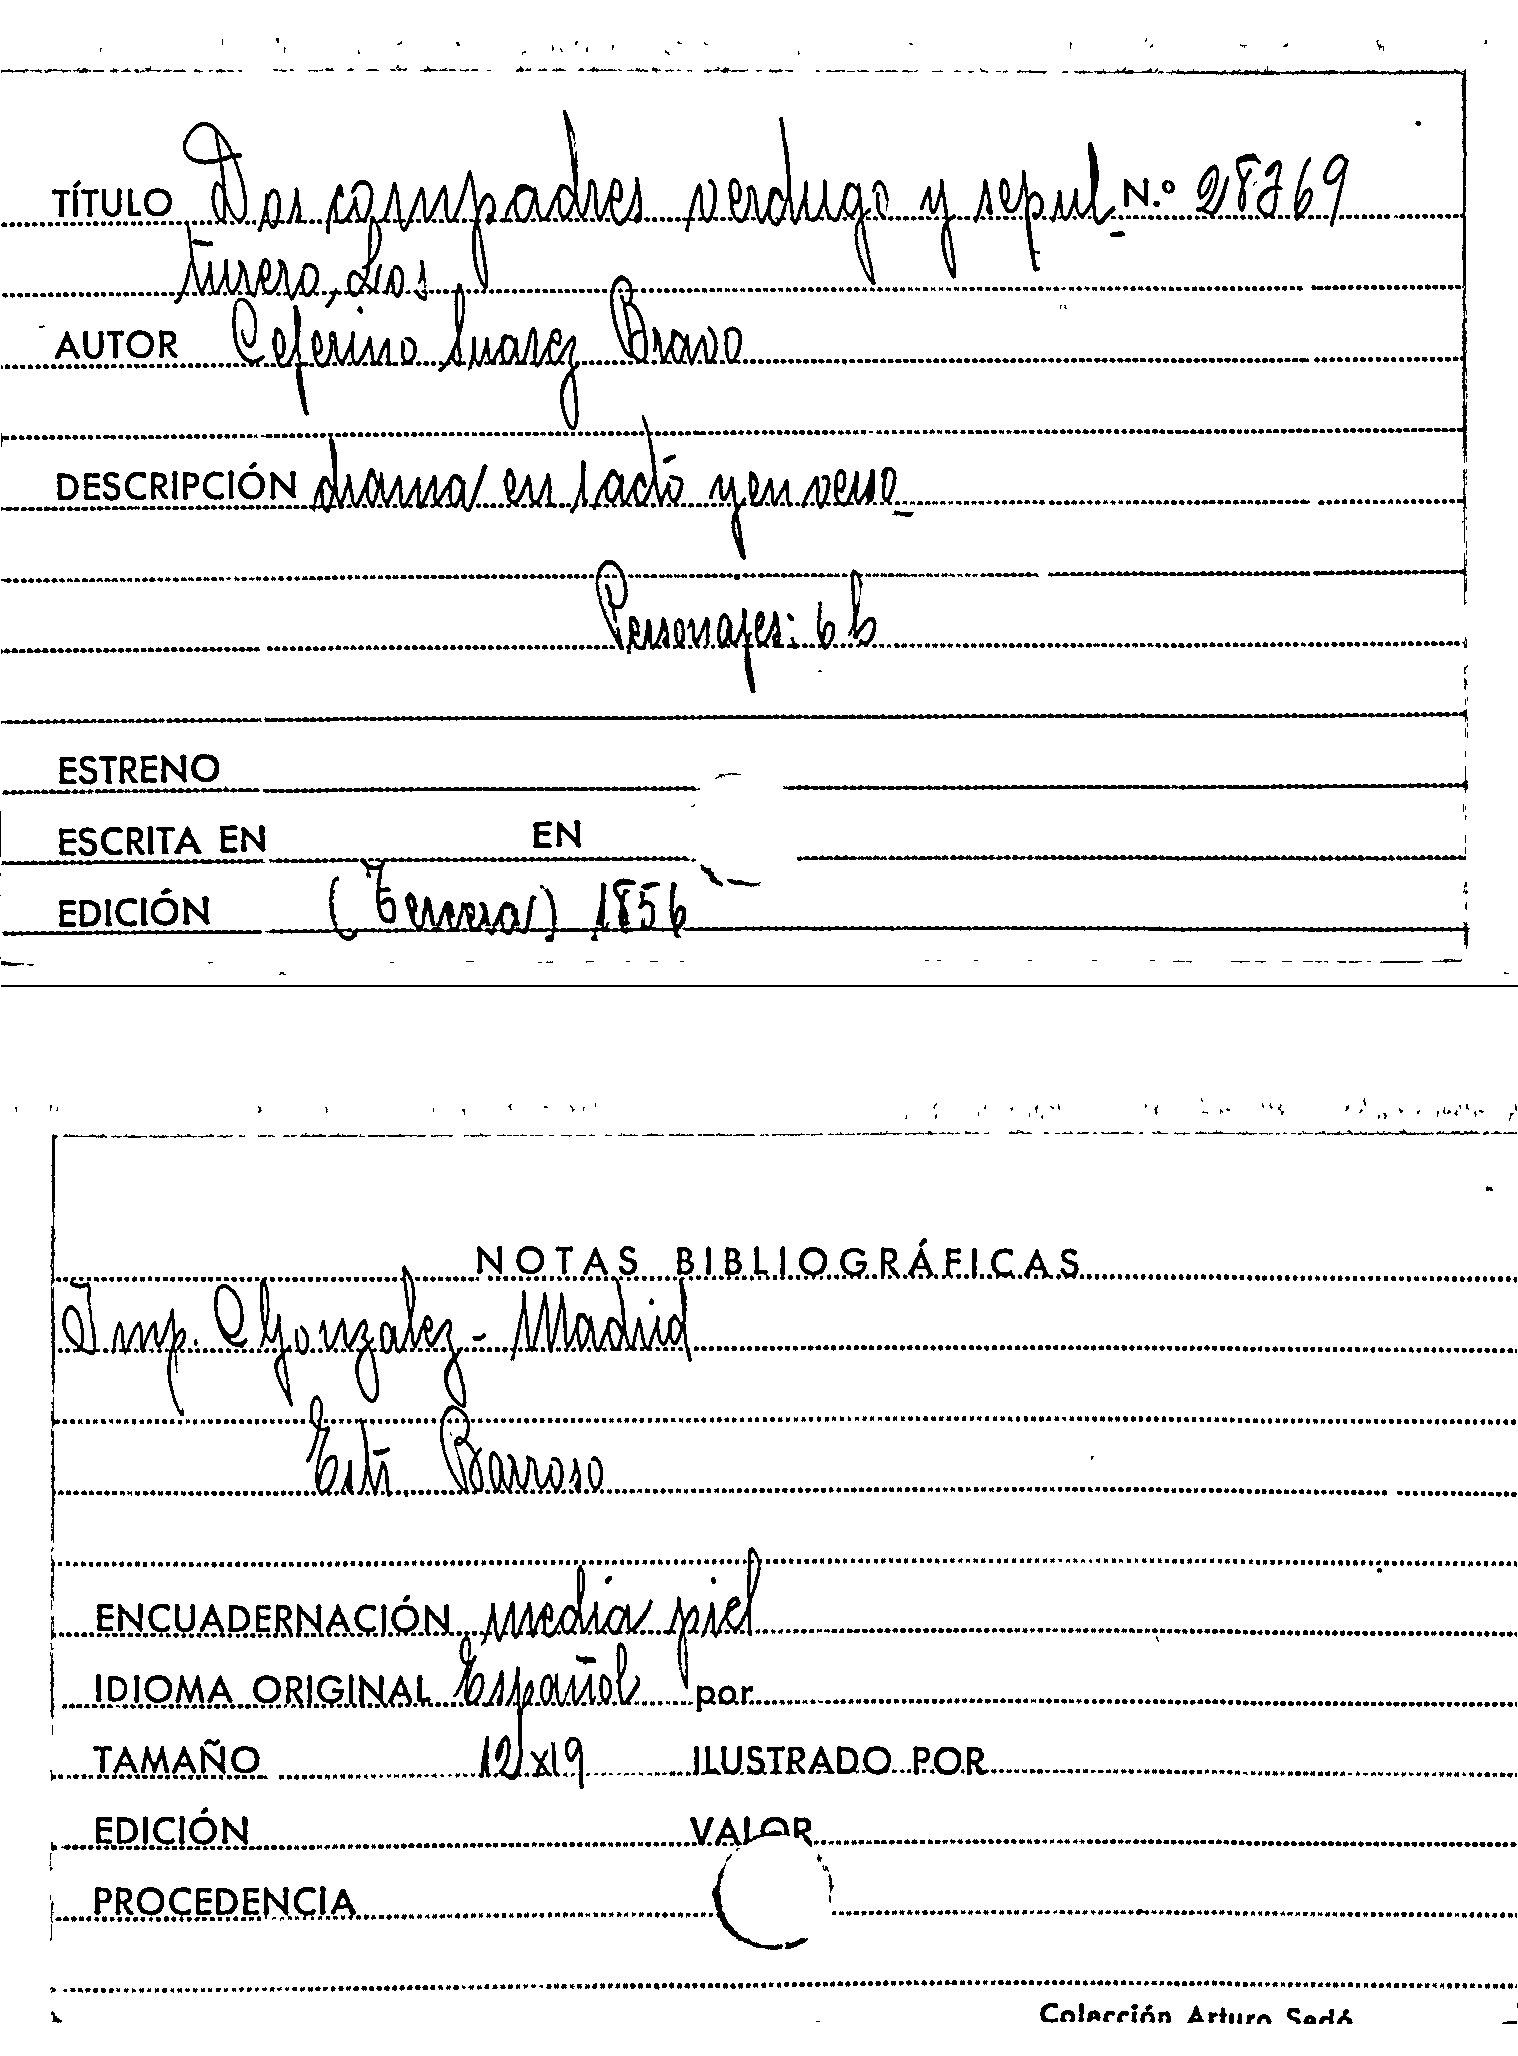 TÍTULO Dos compadres verdugo y sepul- N.º 28769
turero, Los
AUTOR Ceferino Suarez Bravo
DESCRIPCIÓN drama en 1 acto y en verso
Personajes: 6 h
ESTRENO
ESCRITA EN EN
EDICIÓN (Tercera) 1856
NOTAS BIBLIOGRÁFICAS
Imp. C Gonzalez - Madrid
Barroso
ENCUADERNACIÓN media piel
IDIOMA ORIGINAL Español por
TAMAÑO 12x19 ILUSTRADO POR
EDICIÓN VALOR
PROCEDENCIA
Colección Arturo Sedó